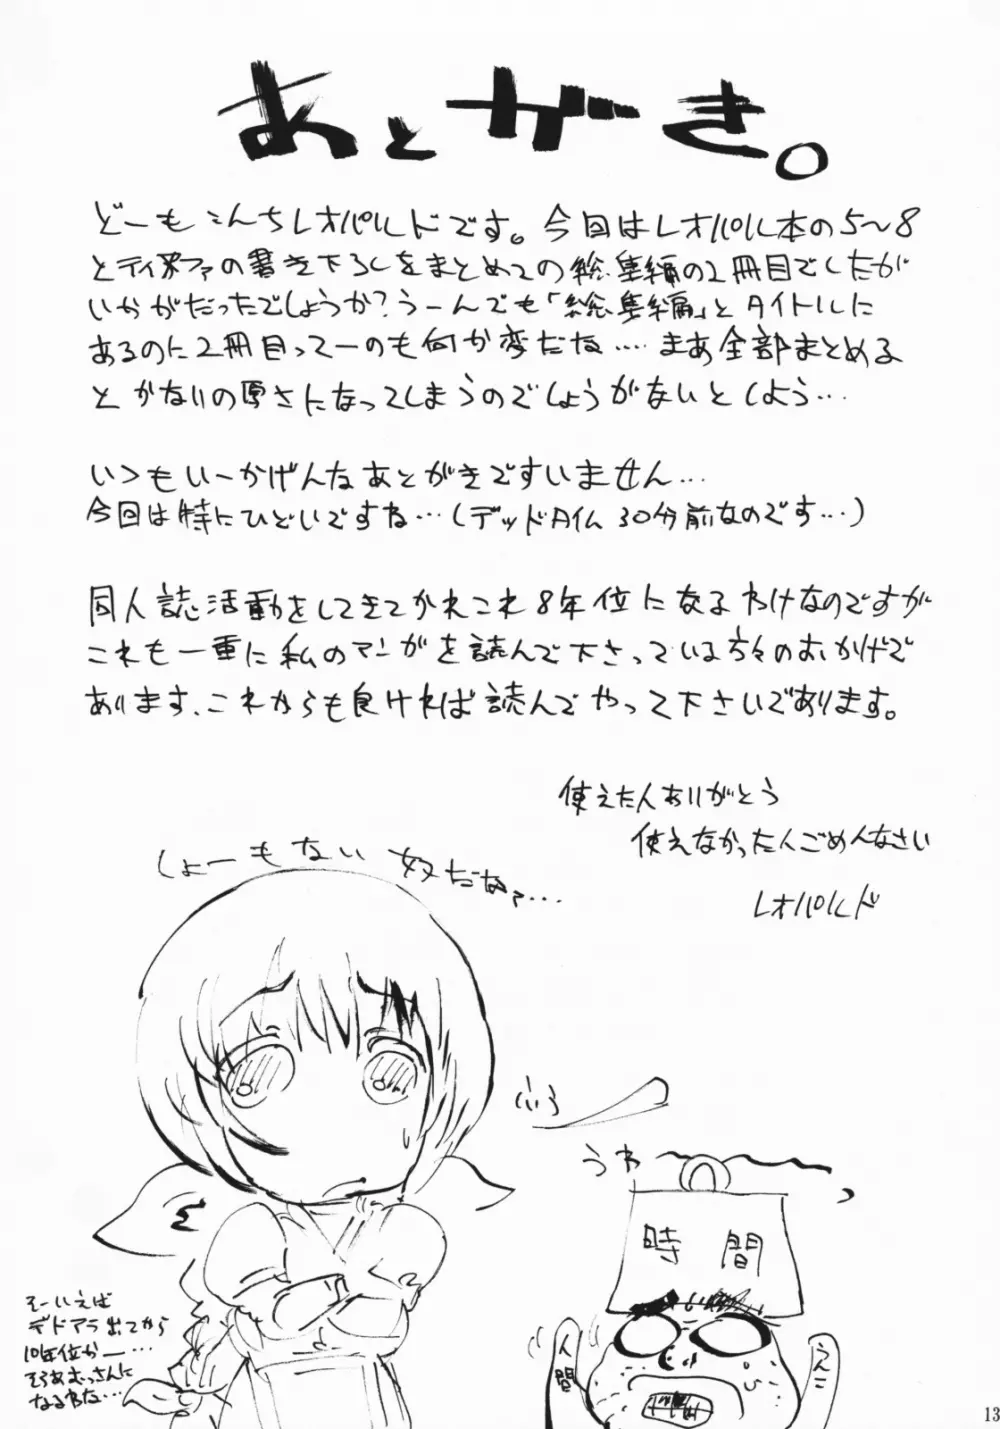 あとがき。
どーもこんちレオパルドです。今回はレオパル本の5〜8
とティファの書き下ろしをまとめての総集編の2冊目でしたが
いかがだったでしょうか?うーんでも「総集編」とタイトルに
あるのに2冊目ってーのも何か変だな…. まあ全部まとめる
とかないの厚さになってしまうのでしょうがないとしよう…
いつもいーかげんなあとがきですいません…
今回は特にひどいですね…(デッドタイム30分前なのです…)
同人誌活動をしてきてかれこれ8年位になるわけなのですが
これも一重に私のマンガを読んで下さっている方々のおかげで
あります、これからも良ければ読んでやって下さいであります。
使えた人ありがとう
使えなかった人ごめんなさい
レオパルド
しょーもない奴だなァ…
うわ
時間
人間
そーいえば
デドアラ出てから
10年位かー…
そらあむっさんに
なるわな…
13